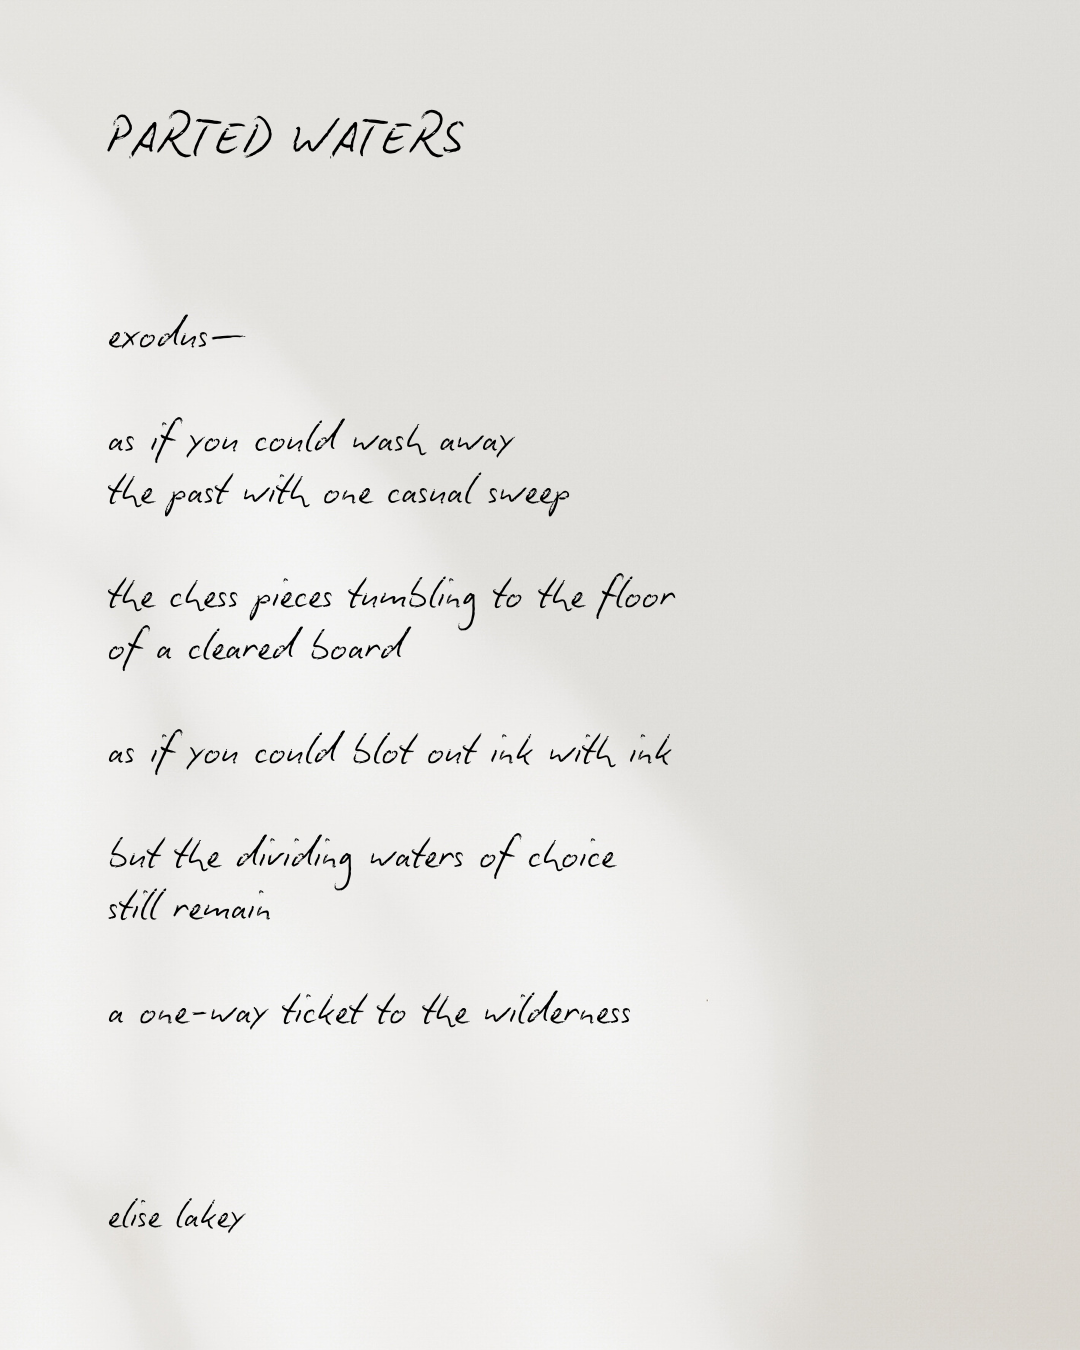 PARTED WATERS
exodus—
as if you could wash away
the past with one casual sweep
the chess pieces tumbling to the floor
of a cleared board
as if you could blot out ink with ink
but the dividing waters of choice
still remain
a one-way ticket to the wilderness
elise lakey